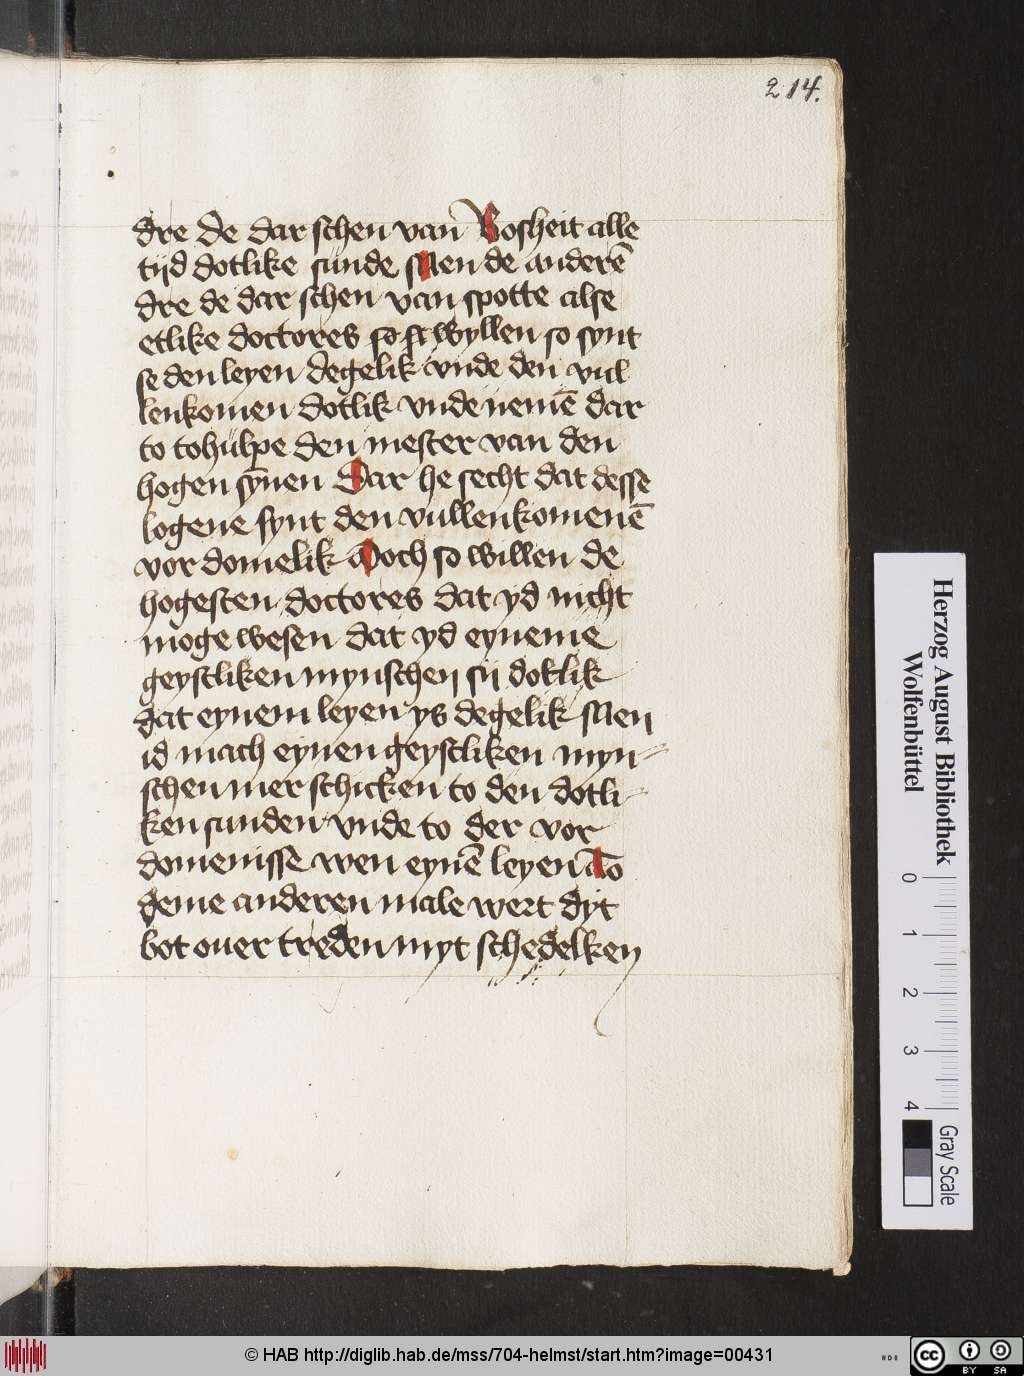 214.
dre de dar schen van Bosheit alle
tijd dotlike sunde Men de anderē
dre de dar schen van spotte alse
etlike doctores so se wyllen so synt
se den leyen degelik vnde den vul
lenkomen dotlik vnde nemē dar
to tohulpe den mester van den
hogen sȳnen Dar he secht dat desse
logene synt den vullenkomenē
vor domelik Doch so willen de
hogesten doctores dat yd nicht
moge wesen dat yd eyneme
geystliken mynschen sij dotlik
dat eynem leyen ys degelik Men
id mach eynen geystliken myn=
schen mer schicken to den dotli=
ken sunden vnde to der vor
domenisse wen eynē leyen To
deme anderen male wert dyt
bot ouer treden myt schedelken
Herzog August Bibliothek
Wolfenbüttel
0 1 2 3 4
Gray Scale
© HAB http://diglib.hab.de/mss/704-helmst/start.htm?image=00431
cc BY SA